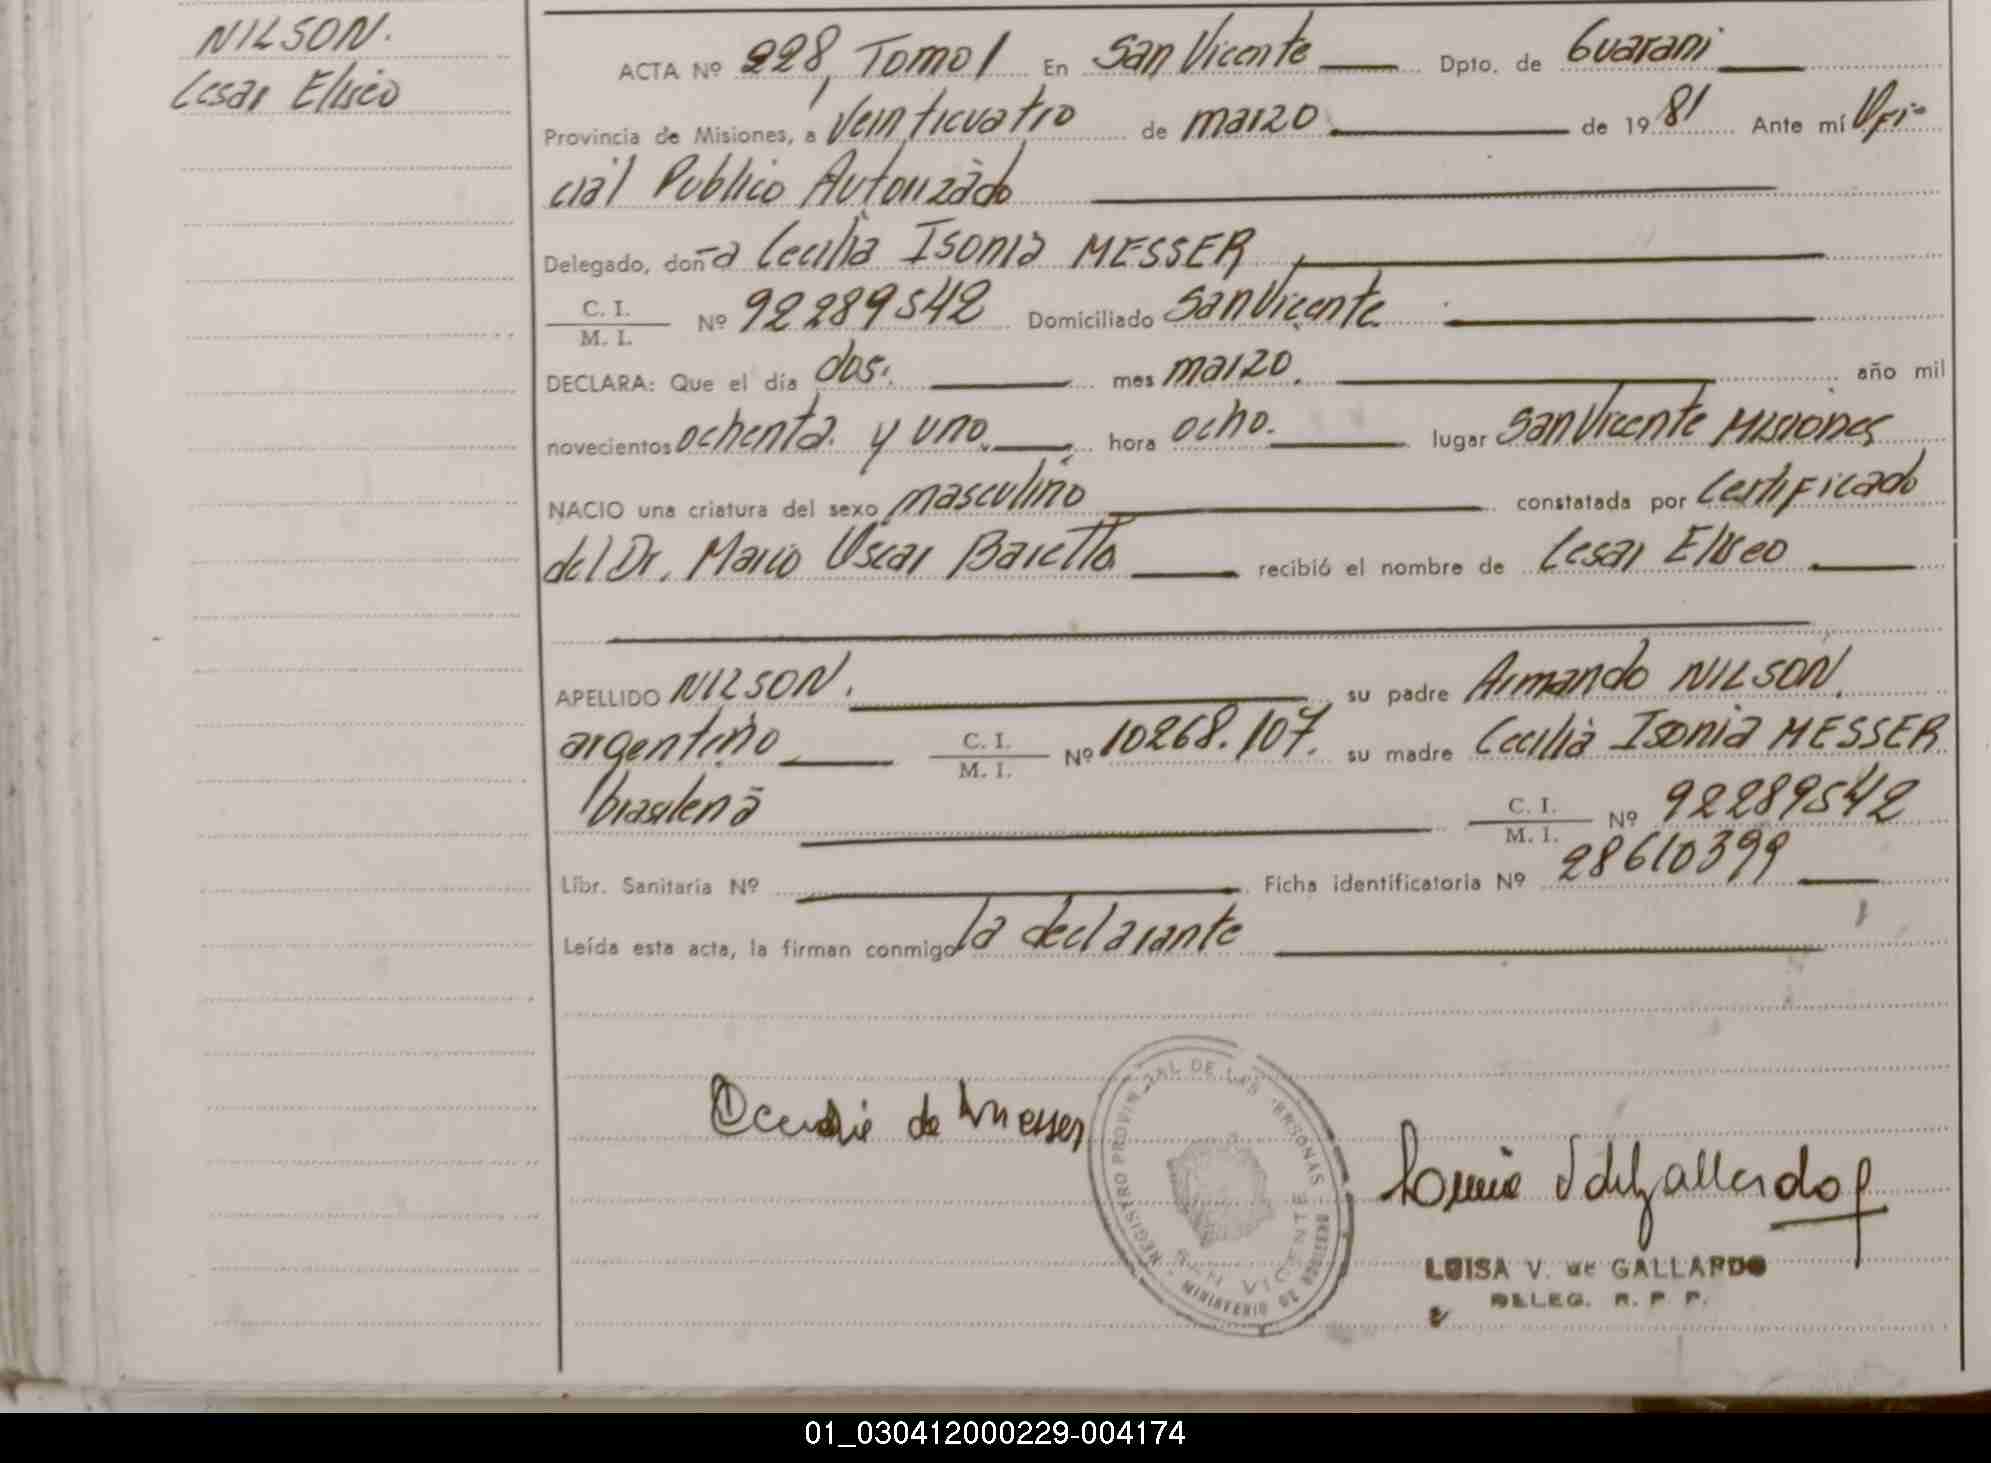 NILSON.
Cesar Eliseo
ACTA Nº 228, Tomo I En San Vicente Dpto. de Guarani
Provincia de Misiones, a veinticuatro de marzo de 1981 Ante mí Ofi-
cial Publico Autorizado
Delegado, doña Cecilia Isonia MESSER
C. I.
M. I. Nº 92289542 Domiciliado San Vicente
DECLARA: Que el día dos. mes marzo. año mil
novecientos ochenta y uno hora ocho. lugar San Vicente Misiones
NACIO una criatura del sexo masculino constatada por Certificado
del Dr. Mario Oscar Baretto recibió el nombre de Cesar Eliseo
APELLIDO NILSON. su padre Armando NILSON.
argentino C. I. M. I. Nº 10268.107. su madre Cecilia Isonia MESSER
brasileña C. I. M. I. Nº 92289542
Libr. Sanitaria Nº Ficha identificatoria Nº 28610399
Leída esta acta, la firman conmigo la declarante
de Messer
REGISTRO PROVINCIAL DE LAS PERSONAS
SAN VICENTE
MINISTERIO DE GOBIERNO
Gallardo
LUISA V. de GALLARDO
DELEG. R. P. P.
01_030412000229-004174